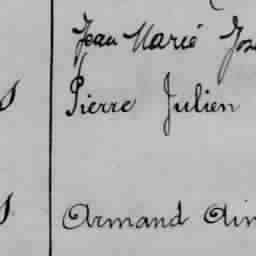 Jean Marie
Pierre Julien
Armand